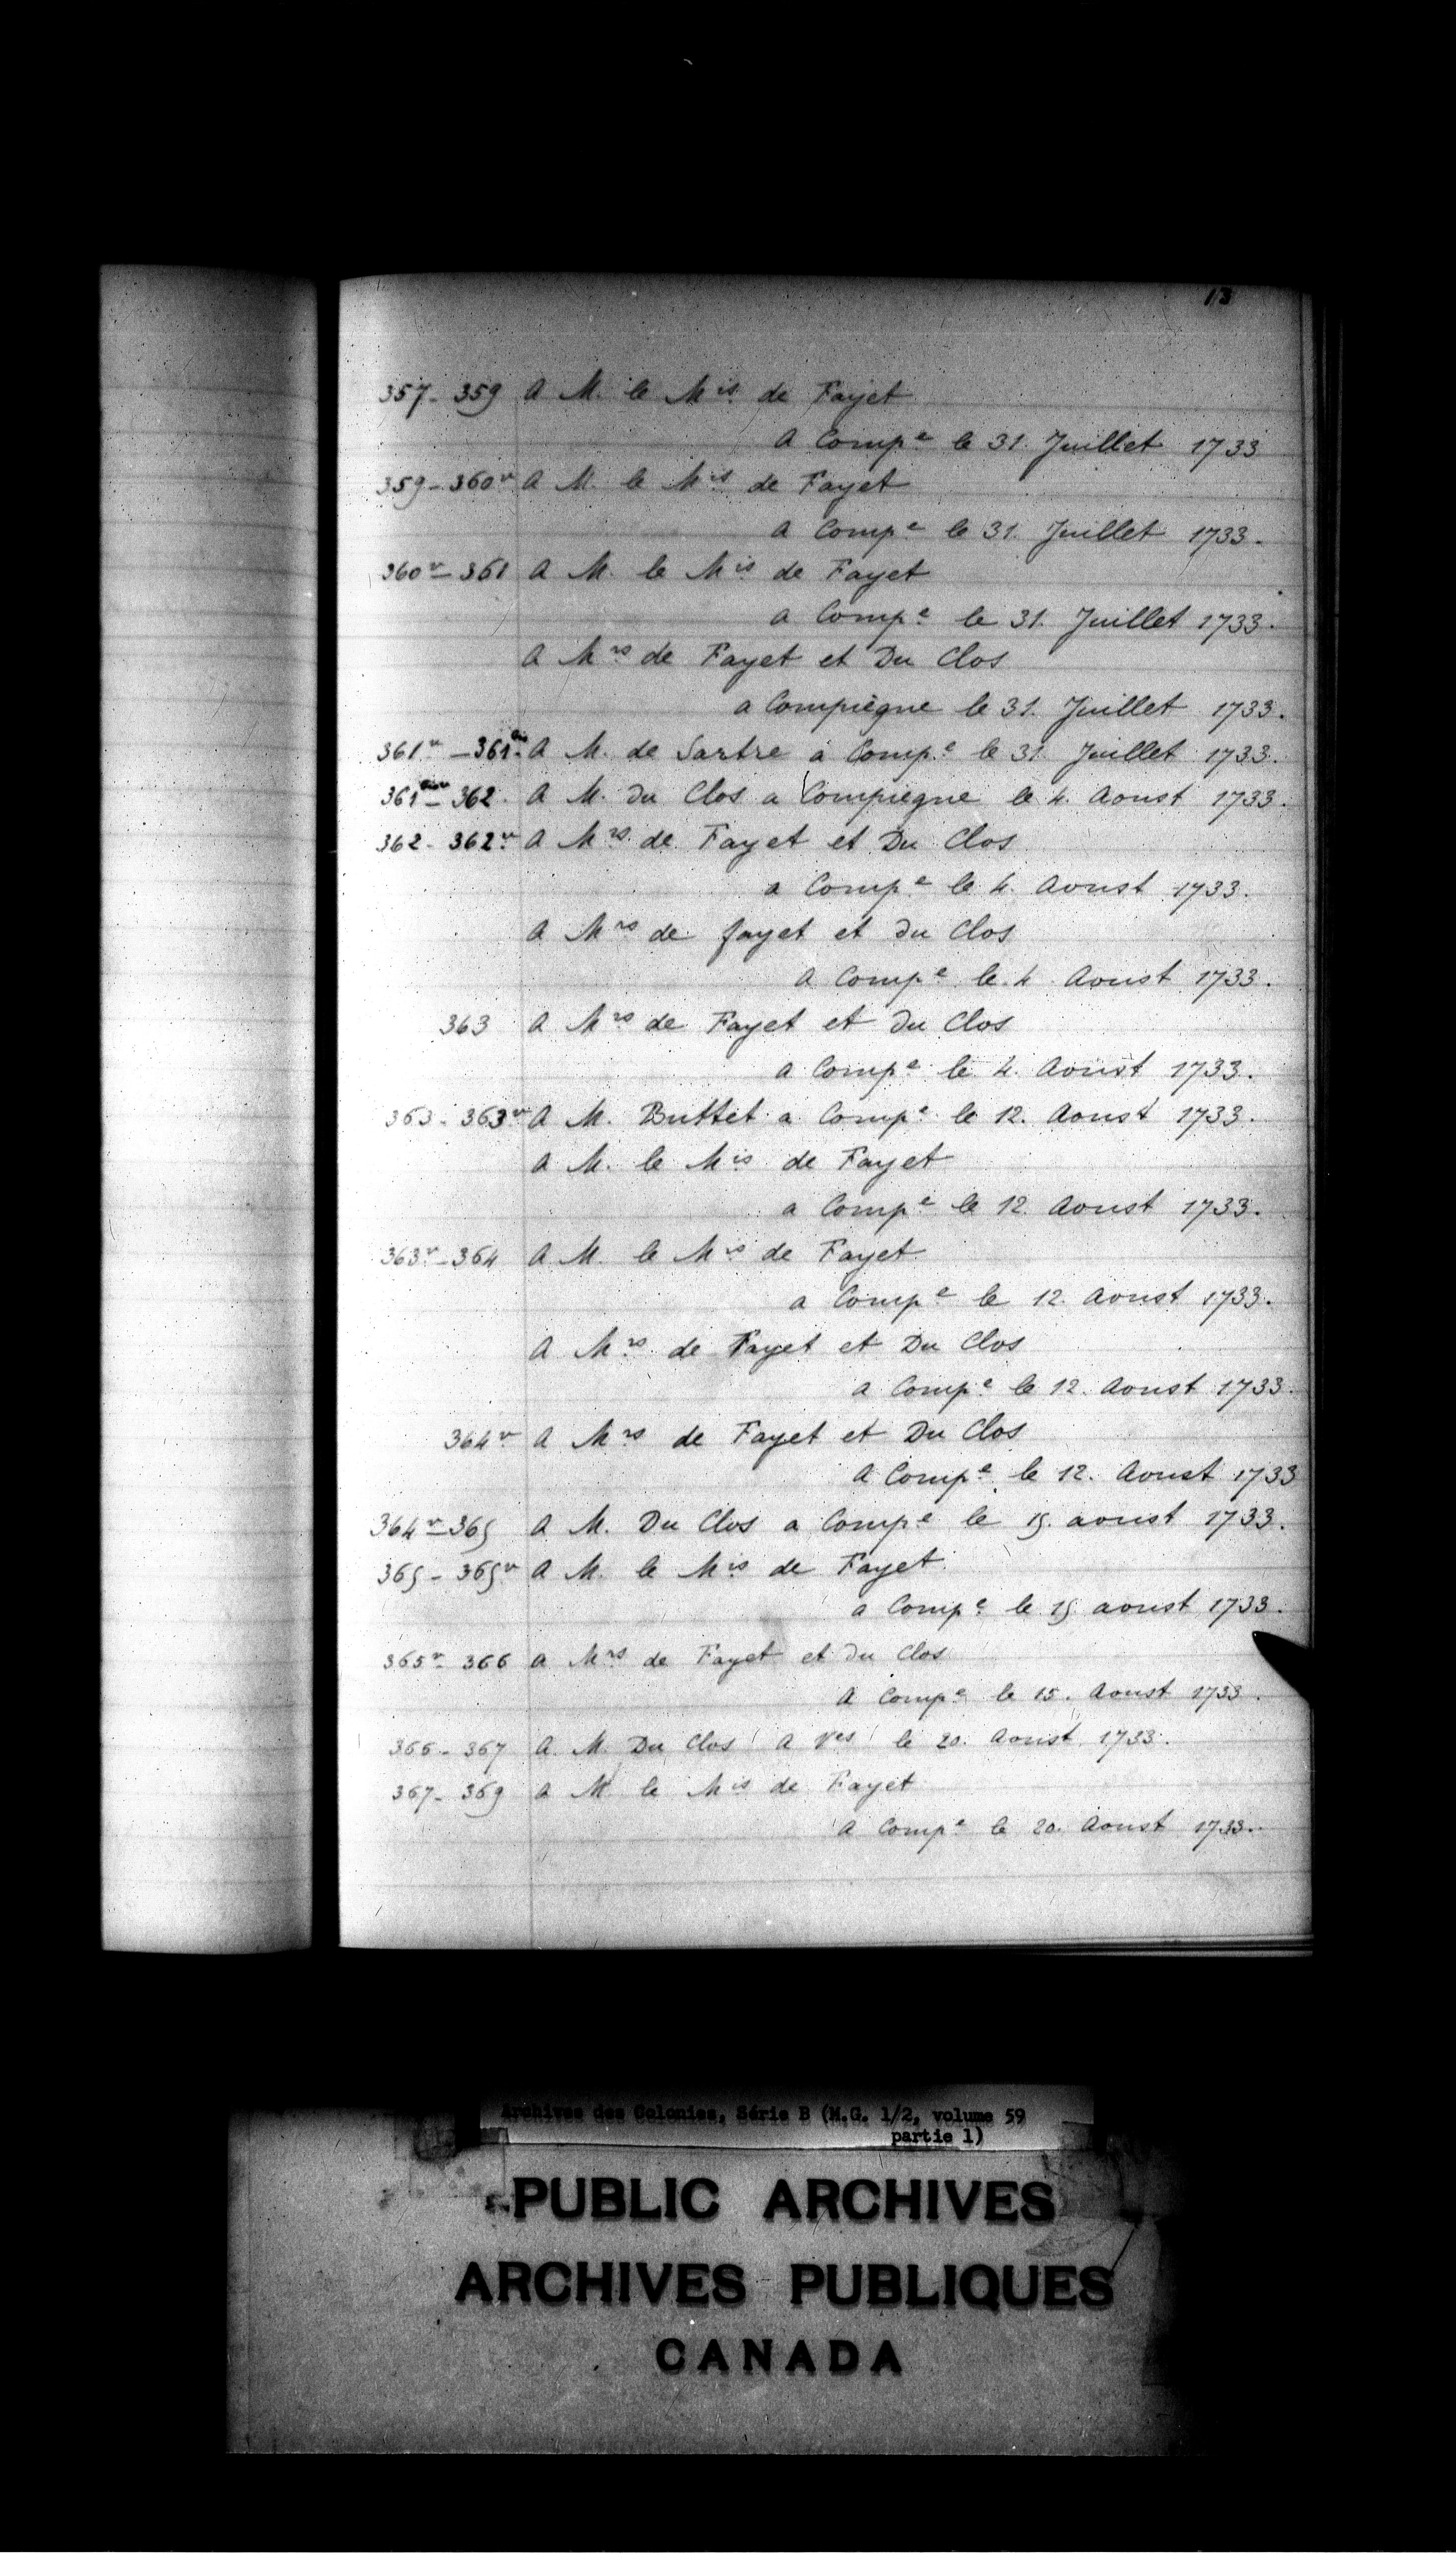 13
357 - 359 A M. le Mis de Fayet
A Compe le 31. Juillet 1733
359 - 360v A M. le Mis de Fayet
A Compe le 31. Juillet 1733.
360v - 361 A M. le Mis de Fayet
a Compe le 31. Juillet 1733.
A Mrs de Fayet et Du Clos
a Compiègne le 31. Juillet 1733.
361v - 361bis A M. de Sartre a Compe le 31. Juillet 1733.
361 - 362. A M. du Clos a Compiegne le 4. Aoust 1733.
362 - 362v A Mrs de Fayet et Du Clos
a Compe le 4. Aoust 1733.
A Mrs de fayet et du Clos
A Compe le 4 Aoust 1733.
363 A Mrs de Fayet et du Clos
a Compe le 4. Aoust 1733.
363 - 363v A M. Buttet a Compe le 12. Aoust 1733.
A M. le Mis de Fayet
a Compe le 12 Aoust 1733.
363v - 364 A M. le Mis de Fayet
a Compe le 12. Aoust 1733.
A Mrs de Fayet et Du Clos
a Compe le 12. Aoust 1733.
364v A Mrs de Fayet et Du Clos
A Compe le 12. Aoust 1733
364v - 365 A M. Du Clos a Compe le 15. aoust 1733.
365 - 365v A M. le Mis de Fayet
a Compe le 15 aoust 1733.
365v - 366 a Mrs de Fayet et du Clos
A Compe le 15. Aoust 1733.
366 - 367 A. M. Du Clos A Ves le 20. Aoust 1733.
367 - 369 a M le Mis de Fayet
A Compe le 20. Aoust 1733.
Archives des Colonies, Série B (M.G. 1/2, volume 59
partie 1)
PUBLIC ARCHIVES
ARCHIVES PUBLIQUES
CANADA